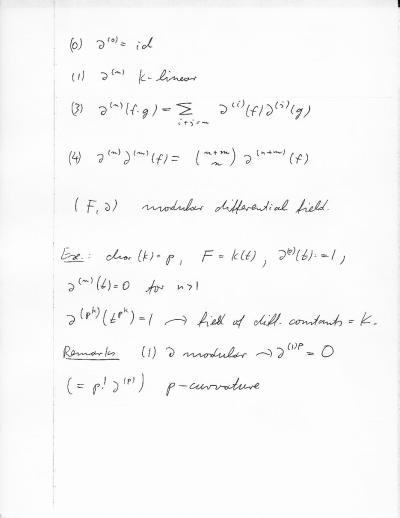 (0) ∂^(0) = id
(1) ∂^(n) K-linear
(3) ∂^(n)(f·g) = ∑_{i+j=n} ∂^(i)(f) ∂^(j)(g)
(4) ∂^(n) ∂^(m)(f) = (n+m n) ∂^(n+m)(f)
(F, ∂) modular differential field.
Ex.: char(k) = p, F = k(t), ∂^(1)(t) := 1,
∂^(n)(t) = 0 for n>1
∂^(p^k)(t^{p^k}) = 1 → field of diff. constants = K.
Remarks (1) ∂ modular → ∂^{(1)p} = 0
(= p! ∂^(p)) p-curvature